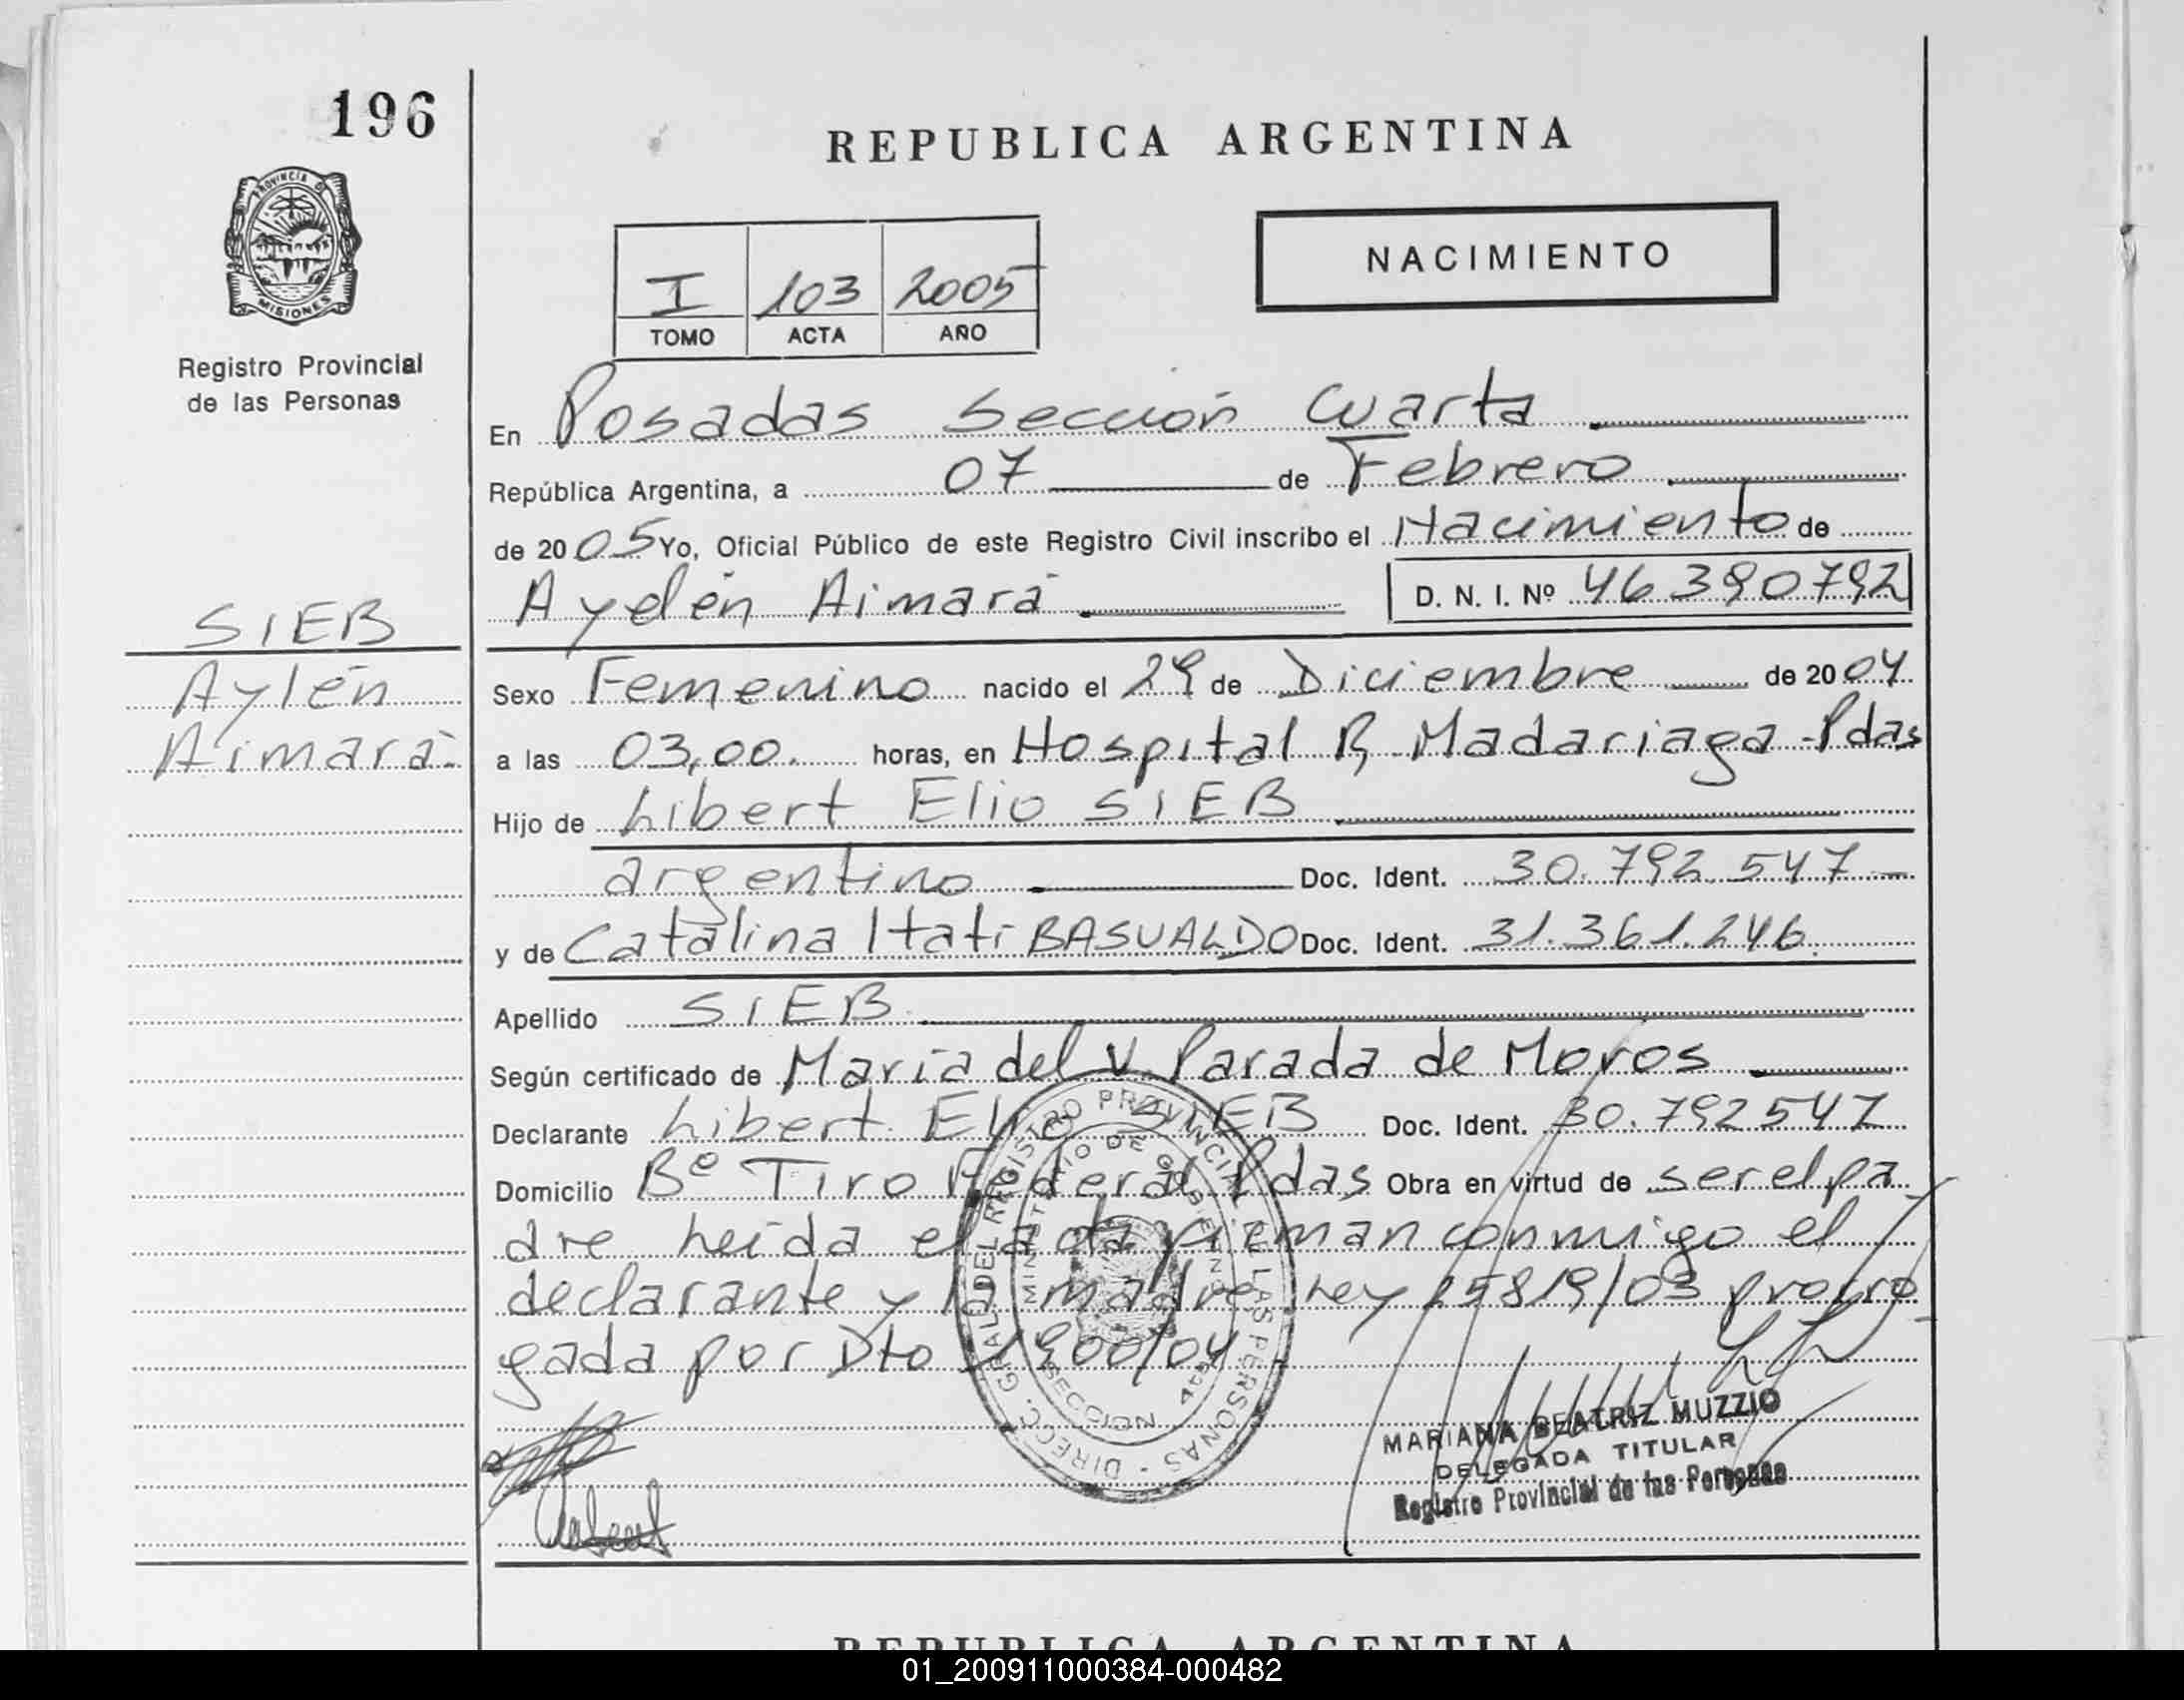 196
REPUBLICA ARGENTINA
PROVINCIA DE
MISIONES
Registro Provincial
de las Personas
NACIMIENTO
I 103 2005
TOMO ACTA AÑO
En Posadas Sección Cuarta
República Argentina, a 07 de Febrero
de 2005 Yo, Oficial Público de este Registro Civil inscribo el Nacimiento de
Ayelén Aimará D. N. I. Nº 46390792
SIEB
Aylén
Aimará.
Sexo Femenino nacido el 29 de Diciembre de 2004
a las 03,00. horas, en Hospital R. Madariaga - Pdas
Hijo de Libert Elio SIEB
argentino Doc. Ident. 30.792.547
y de Catalina Itatí BASUALDO Doc. Ident. 31.361.246.
Apellido SIEB
Según certificado de María del V. Parada de Moros
Declarante Libert Elio SIEB Doc. Ident. 30.792547
Domicilio Bº Tiro Federal Pdas Obra en virtud de ser el pa
dre Leída el acta firman conmigo el
declarante y la madre, Ley 25819/03 prorro
gada por Dto 1900/04
DIRECC. GRAL. DEL REGISTRO PROVINCIAL DE LAS PERSONAS
MINISTERIO DE GOBIERNO
SECCION 4ta
MARIANA BEATRIZ MUZZIO
DELEGADA TITULAR
Registro Provincial de las Personas
REPUBLICA ARGENTINA
01_200911000384-000482